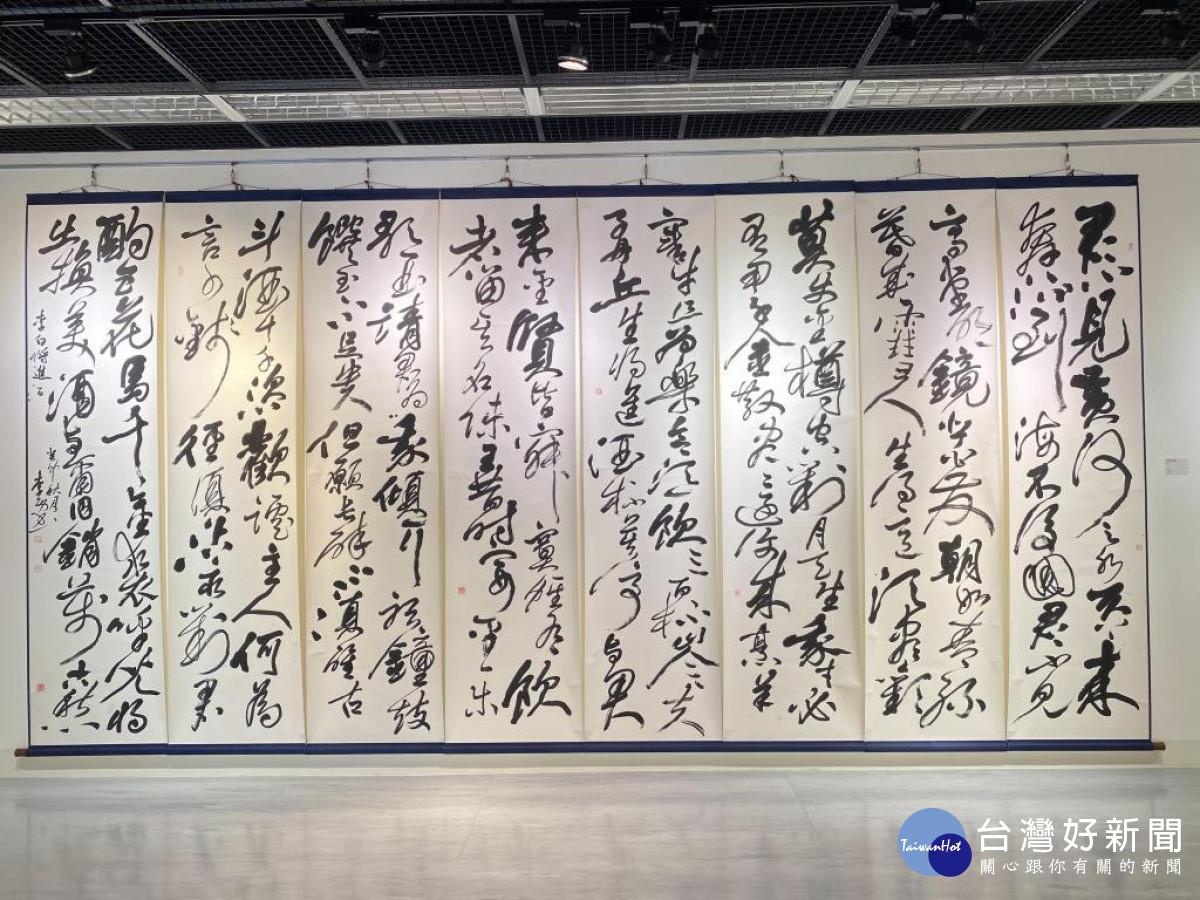 君不見黃河之水天上來
奔流到海不復回君不見
高堂明鏡悲白髮朝如青絲
暮成雪人生得意須盡歡
莫使金樽空對月天生我材必
有用千金散盡還復來烹羊
宰牛且為樂會須飲三百杯岑夫
子丹丘生將進酒杯莫停與君
來聖賢皆寂寞惟有飲
者留其名陳王昔時宴平樂
歌一曲請君為我傾耳聽鐘鼓
饌玉不足貴但願長醉不復醒古
斗酒十千恣歡謔主人何為
言少錢徑須沽取對君
酌五花馬千金裘呼兒將
出換美酒與爾同銷萬古愁
李白將進酒
癸卯秋月
TaiwanHot
台灣好新聞
關心跟你有關的新聞